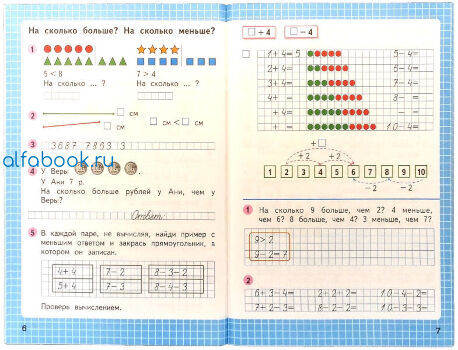 На сколько больше? На сколько меньше?
1
5 < 8
7 > 4
На сколько ... ?
На сколько ... ?
2
см
см
см < см
3
3687 7893 3
alfabook.ru
4
У Веры
У Ани 7 р.
На сколько больше рублей у Ани, чем у
Веры?
Ответ:
5
В каждой паре, не вычисляя, найди пример с
меньшим ответом и закрась прямоугольник, в
котором он записан.
4+4 7-2 8-3-2
5+4 7-3 8-4-3
Проверь вычислением.
6
+4 -4
1+4=5 5-4=
2+4= 6-4=
3+4= 7-4=
4+ = 8- =
+ = - =
+ = 10-4=
+
+2 +2
1 2 3 4 5 6 7 8 9 10
-2 -2
1
На сколько 9 больше, чем 2? 4 меньше,
чем 6? 8 больше, чем 4? 3 меньше, чем 7?
9>2
9-2=7
2
6+3-1= 2+2+2= 10-4-2=
7+2-3= 8-2-2= 10-3-3=
7